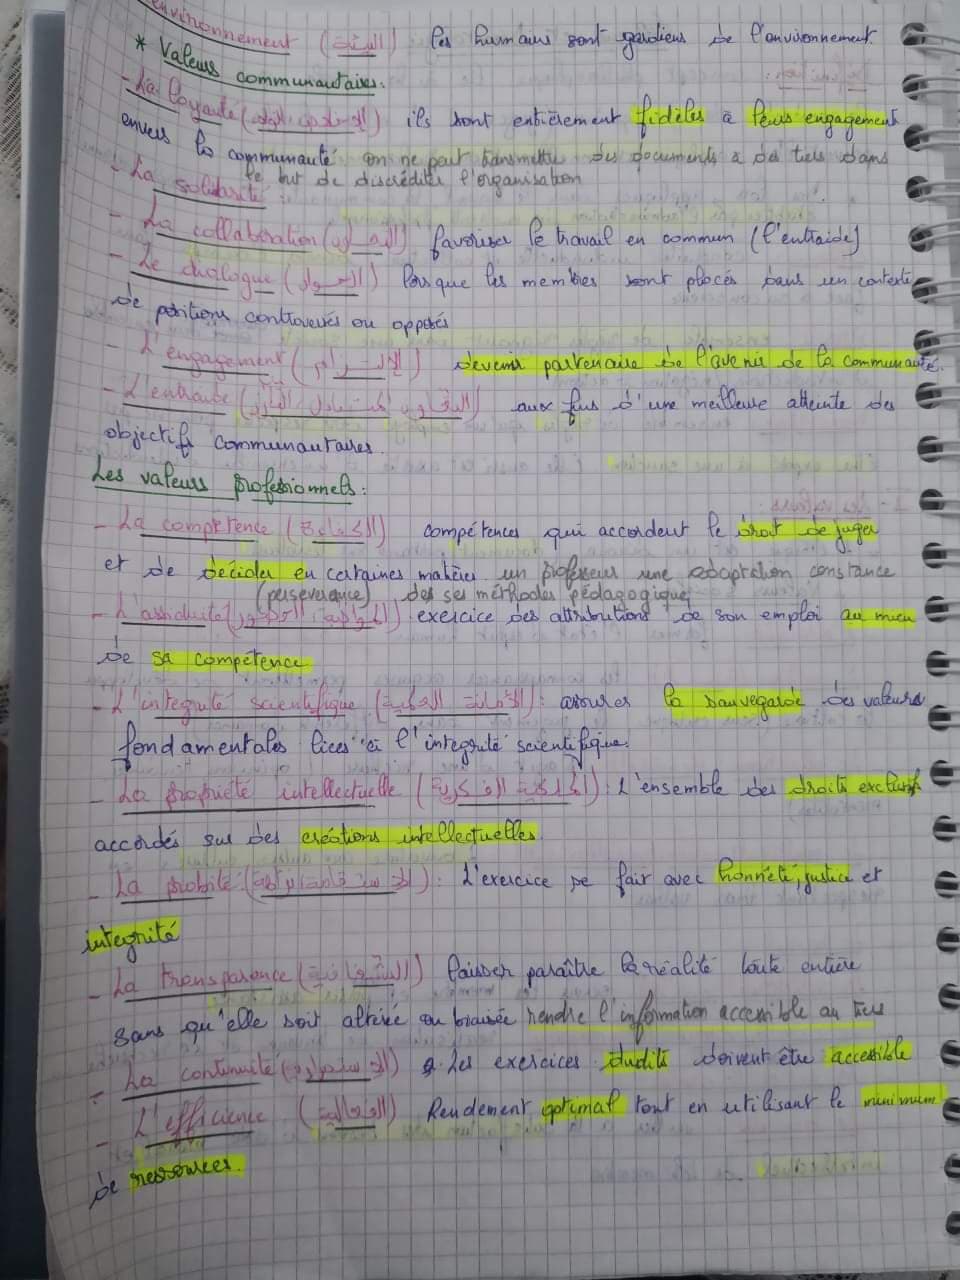 environnement (البيئة) les humains sont gardiens de l'environnement.
* Valeurs communautaires.
- La loyauté ( ) ils sont entièrement fidèles à leurs engagement
envers la communauté on ne peut transmettre des documents a des tiers dans
le but de discréditer l'organisation
- La solidarité :
- La collaboration (التعاون) favoriser le travail en commun (l'entraide)
- Le dialogue (الحوار) lorsque les membres sont placés dans un contexte
de positions controversés ou opposés
- L'engagement (الالتزام) devenir partenaire de l'avenir de la communauté.
- L'entraide ( ) aux fins d'une meilleure atteinte des
objectifs communautaires.
Les valeurs professionnels :
- La compétence (الكفاءة) compétences qui accordent le droit de juger
et de décider en certaines matières un professeur une adaptation constance
(perseverence) des ses méthodes pédagogique
- L'assiduité (المواظبة، الحضور) exercice des attributions de son emploi au mieu
de sa compétence
- L'intégrité scientifique (الأمانة العلمية) : assurer la sauvegarde des valeurs
fondamentales liées à l'intégrité scientifique.
- La propriété intellectuelle (الملكية الفكرية) : L'ensemble des droits exclusifs
accordés sur des créations intellectuelles.
- La probité ( ) : L'exercice se fair avec honnêté, justice et
intégrité
- La transparence (الشفافية) laisser paraître la réalité toute entière
sans qu'elle soit altérée ou biaisée rendre l'information accessible au tiers
- La continuité (الاستمرارية) Les exercices dudits doivent être accessible
- L'efficience (الفعالية) Rendement optimal tout en utilisant le minimum
de ressources.